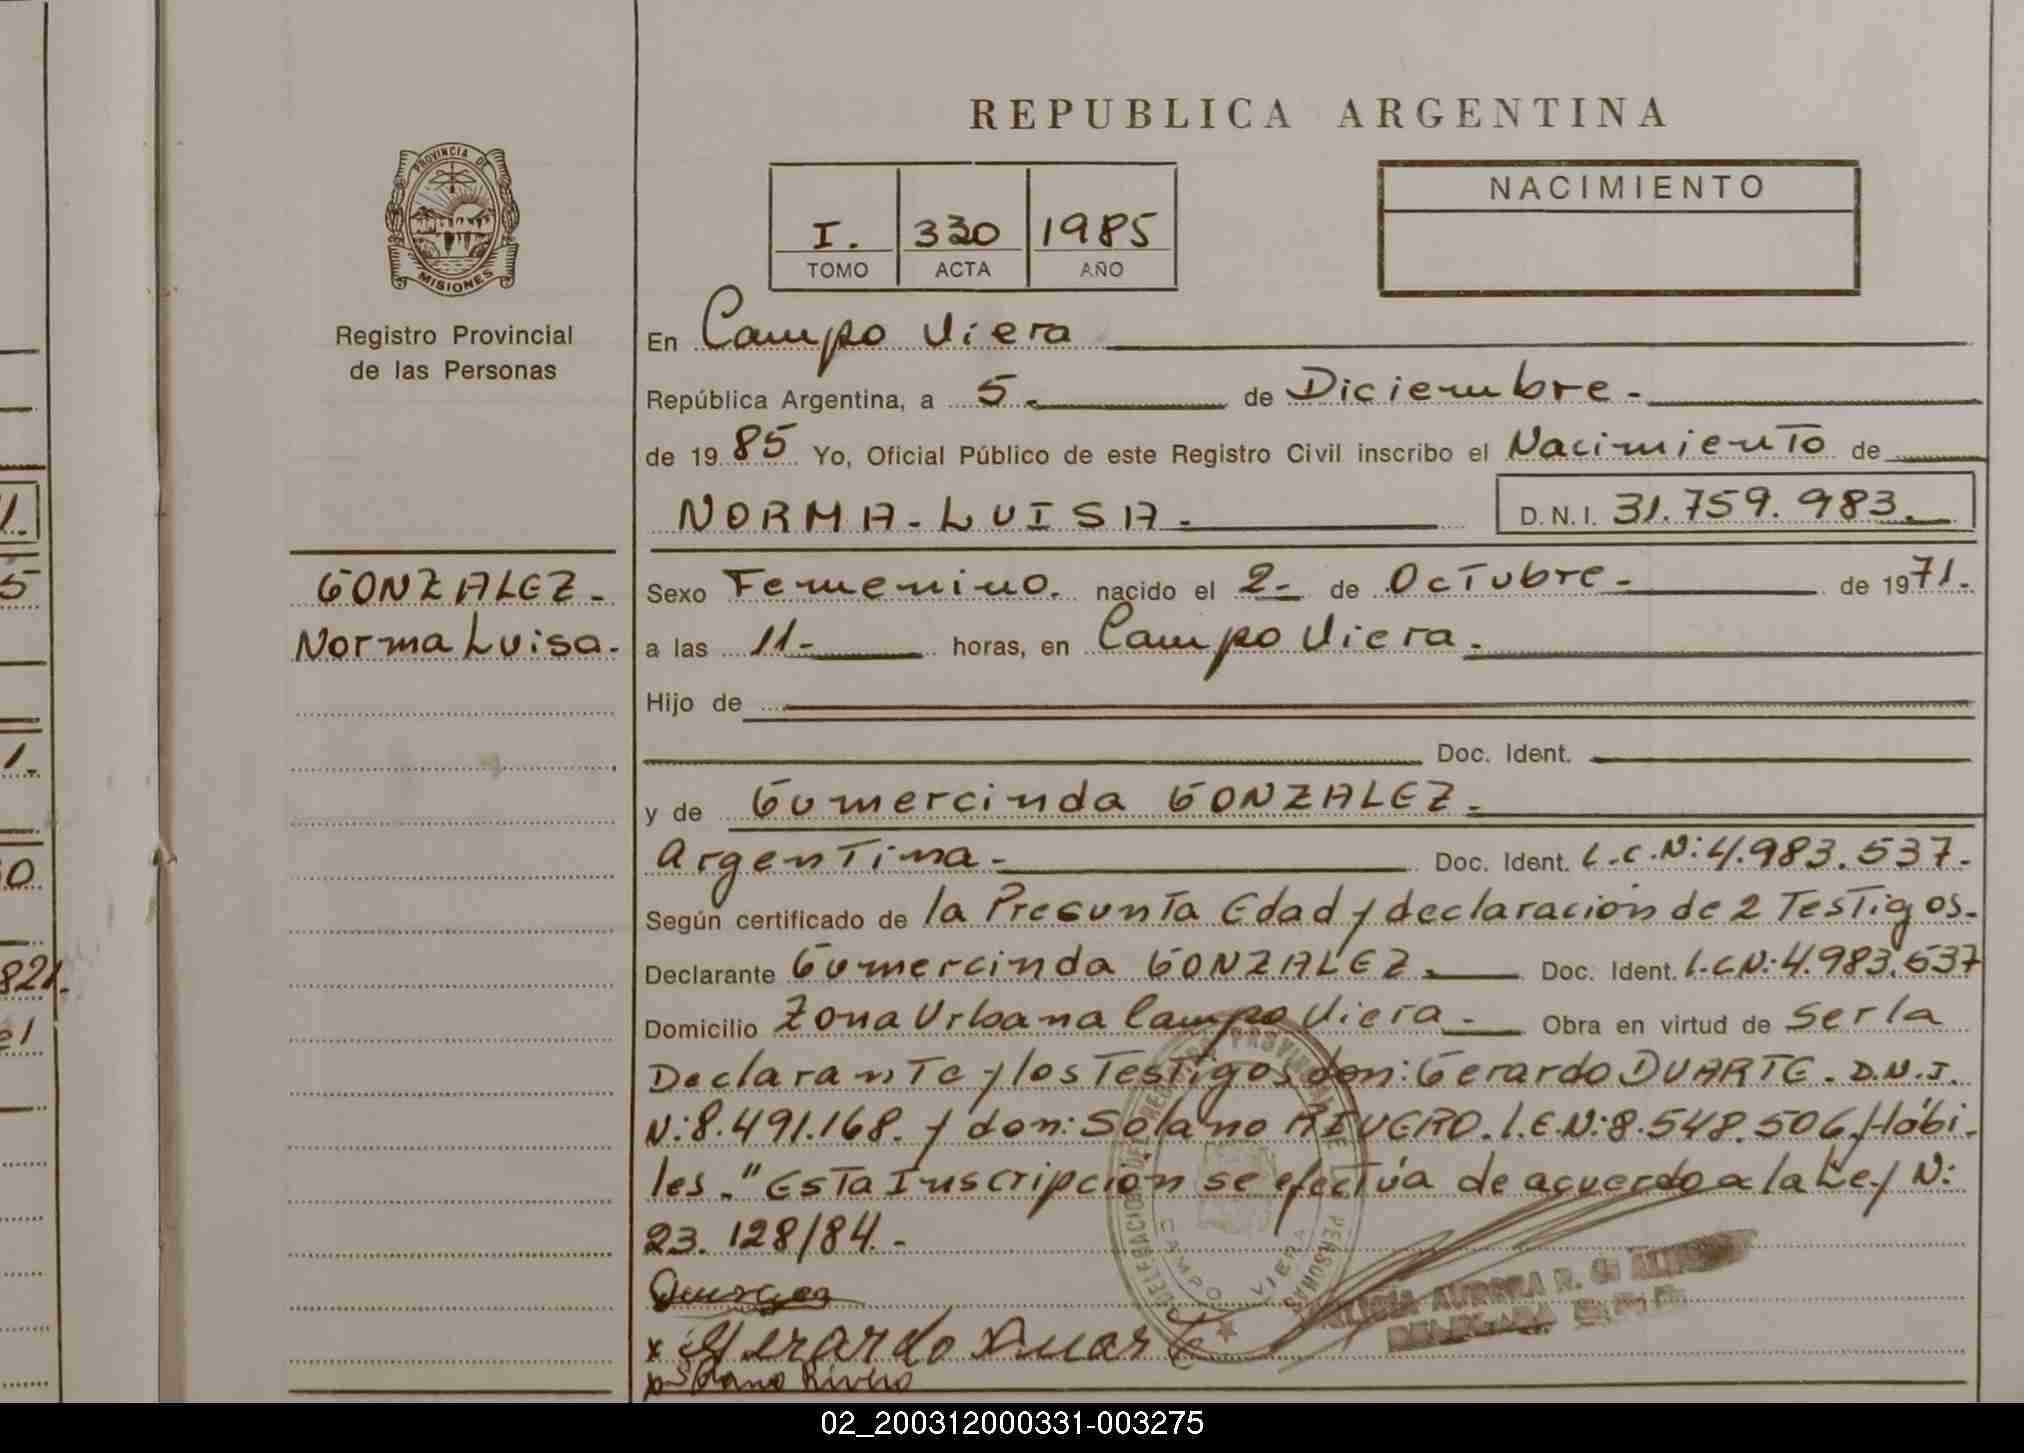 REPUBLICA ARGENTINA
PROVINCIA DE
MISIONES
Registro Provincial
de las Personas
I. 330 1985
TOMO ACTA AÑO
NACIMIENTO
En Campo Viera
República Argentina, a 5. de Diciembre.
de 1985 Yo, Oficial Público de este Registro Civil inscribo el Nacimiento de
NORMA-LUISA. D.N.I. 31.759.983.
GONZALEZ.
Norma Luisa.
Sexo Femenino. nacido el 2- de Octubre. de 1971.
a las 11- horas, en Campo Viera.
Hijo de
Doc. Ident.
y de Gumercinda GONZALEZ.
Argentina. Doc. Ident. L.C.N:4.983.537.
Según certificado de la Presunta Edad y declaración de 2 Testigos.
Declarante Gumercinda GONZALEZ. Doc. Ident. L.C.N:4.983.537
Domicilio Zona Urbana Campo Viera. Obra en virtud de ser la
Declarante y los Testigos don: Gerardo DUARTE. D.N.I.
N:8.491.168. y don: Solano RIVERO. L.E.N:8.548.506. Hábi-
les." Esta Inscripción se efectúa de acuerdo a la Ley N:
23.128/84.-
x Gerardo Duarte
Solano Rivero
CAMPO VIERA
11.
5
1.
0
821.
el
02_200312000331-003275